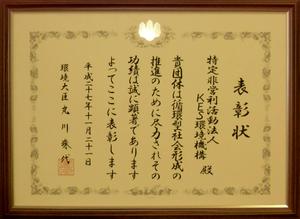 表彰状
特定非営利活動法人
KES環境機構 殿
貴団体は循環型社会形成の
推進のために尽力されその
功績は誠に顕著であります
よってここに表彰します
平成二十七年十一月二十一日
環境大臣 丸川珠代